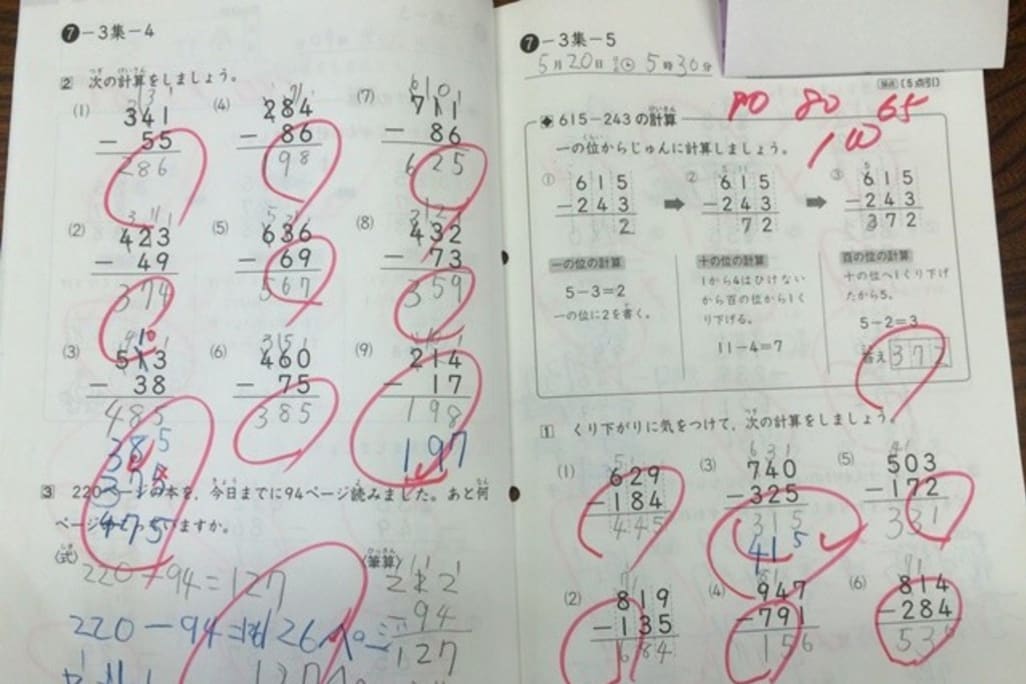 7-3集-4
2 次の計算をしましょう。
(1)
341
- 55
286
(4)
284
- 86
98
(7)
711
- 86
625
(2)
423
- 49
374
(5)
636
- 69
567
(8)
432
- 73
359
(3)
513
- 38
485
475
(6)
460
- 75
385
(9)
214
- 17
198
197
3 220ページの本を、今日までに94ページ読みました。あと何
ページ
ますか。
(式)
220-94=127
220-94=126ページ
(筆算)
-94
127
7-3集-5
5月20日 5時30分
(5点引)
80 65
100
615-243の計算
一の位からじゅんに計算しましょう。
①
615
-243
2
②
615
-243
72
③
615
-243
372
一の位の計算
5-3=2
一の位に2を書く。
十の位の計算
1から4はひけない
から百の位から1く
り下げる。
11-4=7
百の位の計算
十の位へ1くり下げ
たから5。
5-2=3
答え 372
1 くり下がりに気をつけて、次の計算をしましょう。
(1)
629
-184
445
(3)
740
-325
315
415
(5)
503
-172
331
(2)
819
-135
684
(4)
947
-791
156
(6)
814
-284
530